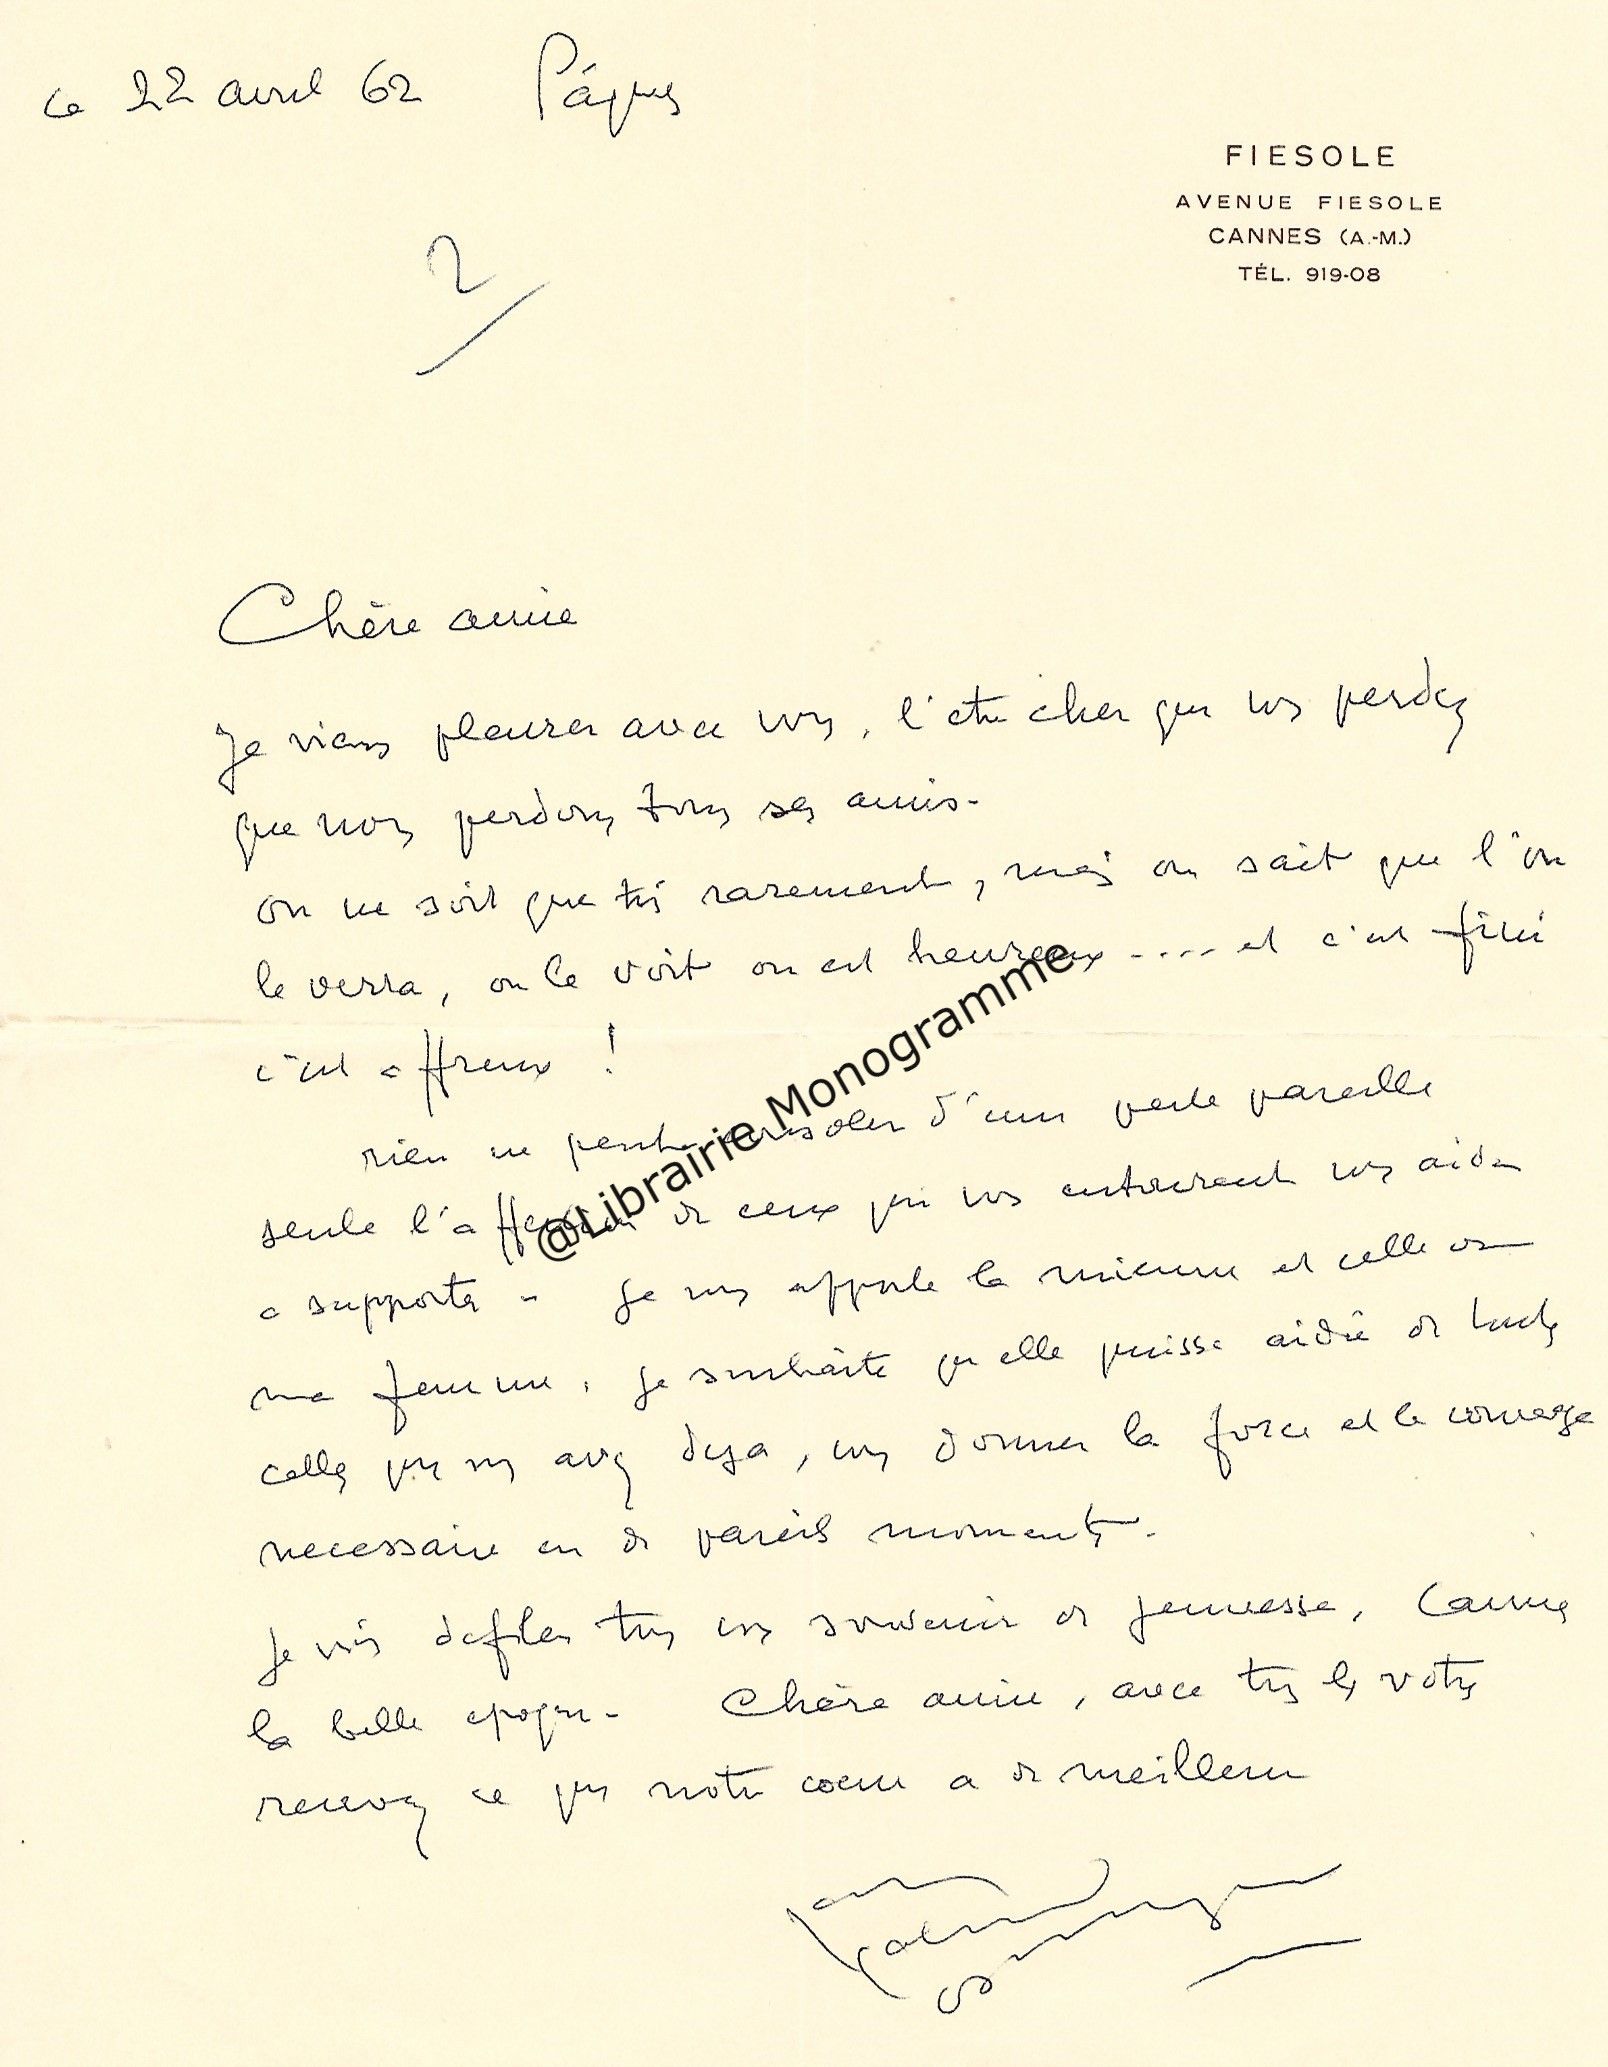 ce 22 avril 62 Pâques
FIESOLE
AVENUE FIESOLE
CANNES (A.-M.)
TÉL. 919-08
2
Chère amie
Je viens pleurer avec vous, l'être cher que vous perdez
que nous perdons tous ses amis.
on ne voit que très rarement, mais on sait que l'on
le verra, on le voit on est heureux .... et c'est fini
c'est affreux !
rien ne peut consoler d'une perte pareille
seule l'affection de ceux qui vous entourent vous aide
a supporter - Je vous apporte la mienne et celle de
ma femme, je souhaite qu'elle puisse aidée de toutes
celles que vous avez deja, vous donner la force et le courage
necessaire en de pareils moments.
Je vois defiler tous vos souvenir de jeunesse, Cannes
la belle epoque - Chère amie, avec tous les votres
recevez ce que notre coeur a de meilleur
@Librairie Monogramme